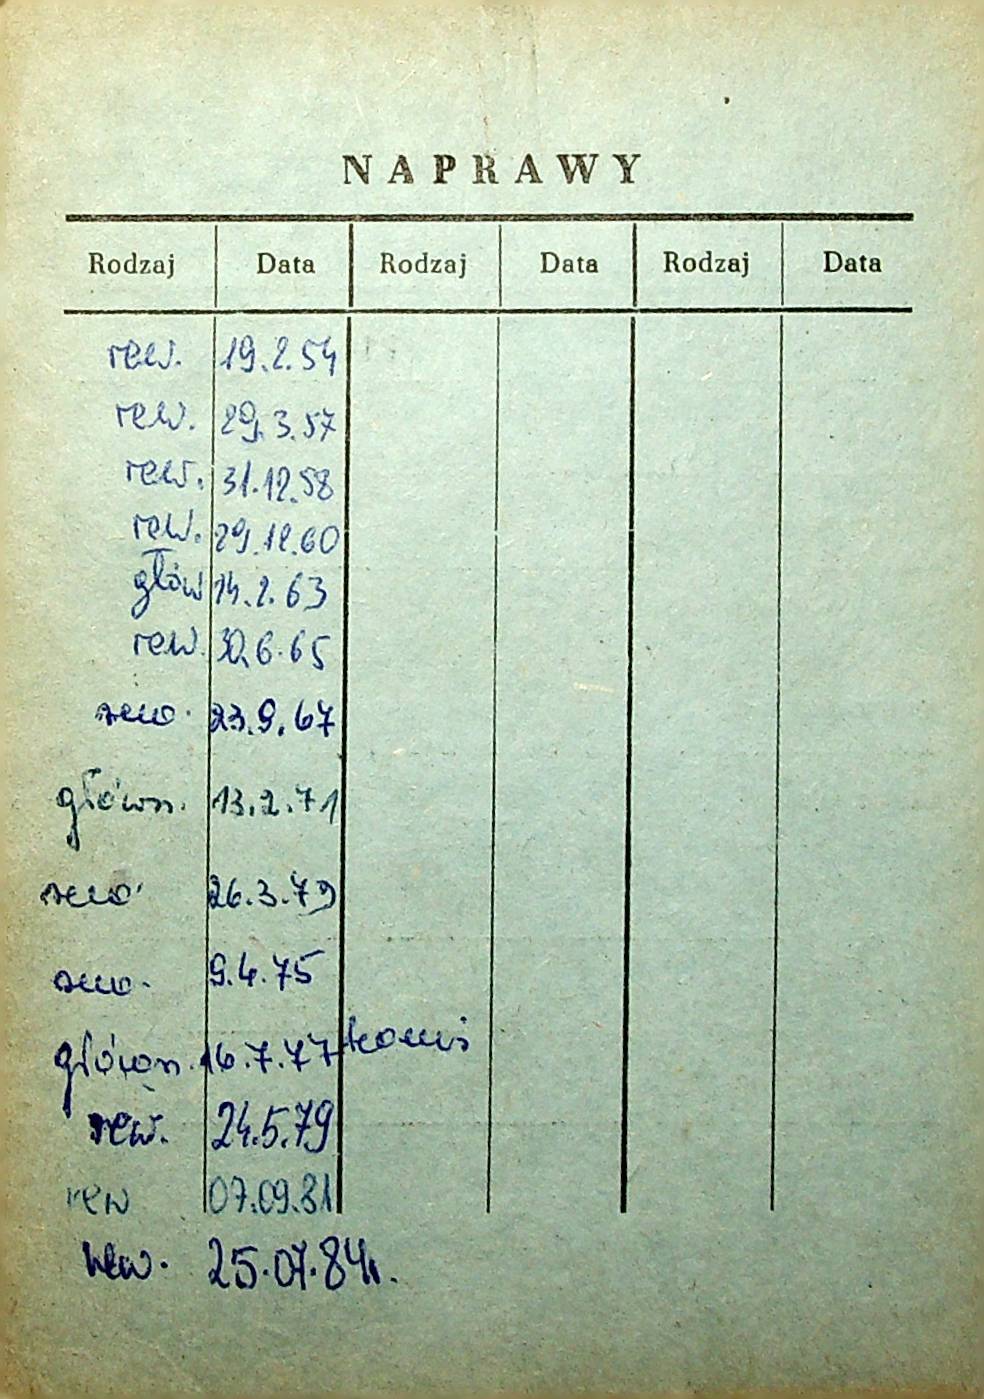 NAPRAWY
Rodzaj Data Rodzaj Data Rodzaj Data
rew. 19.2.54
rew. 29.3.57
rew. 31.12.58
rew. 29.12.60
głów 14.2.63
rew. 30.6.65
rew. 23.9.67
główn. 13.2.71
rew. 26.3.79
rew. 9.4.75
główn. 16.7.77
rew. 24.5.79
rew 07.09.81
rew. 25.07.84r.